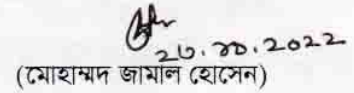 ২০.১০.2022
(মোহাম্মদ জামাল হোসেন)